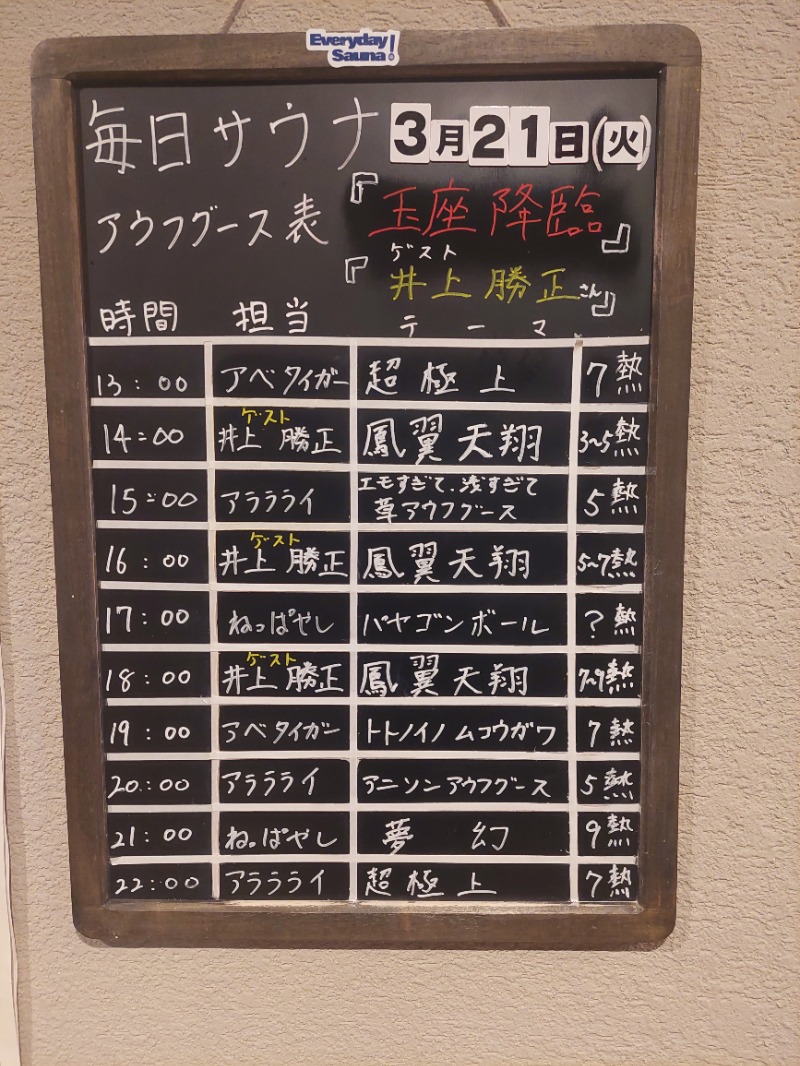 Everyday
Sauna!
毎日サウナ 3月21日(火)
アウフグース表 『玉座降臨』
ゲスト
『井上勝正さん』
時間 担当 テーマ
13:00 アベタイガー 超極上 7熱
ゲスト
14:00 井上勝正 鳳翼天翔 3~5熱
15:00 アラララライ エモすぎて、浅すぎて
草アウフグース 5熱
ゲスト
16:00 井上勝正 鳳翼天翔 5~7熱
17:00 ねっぱやし パヤゴンボール ?熱
ゲスト
18:00 井上勝正 鳳翼天翔 7~9熱
19:00 アベタイガー トトノイノムコウガワ 7熱
20:00 アララライ アニソンアウフグース 5熱
21:00 ねっぱやし 夢幻 9熱
22:00 アララライ 超極上 7熱